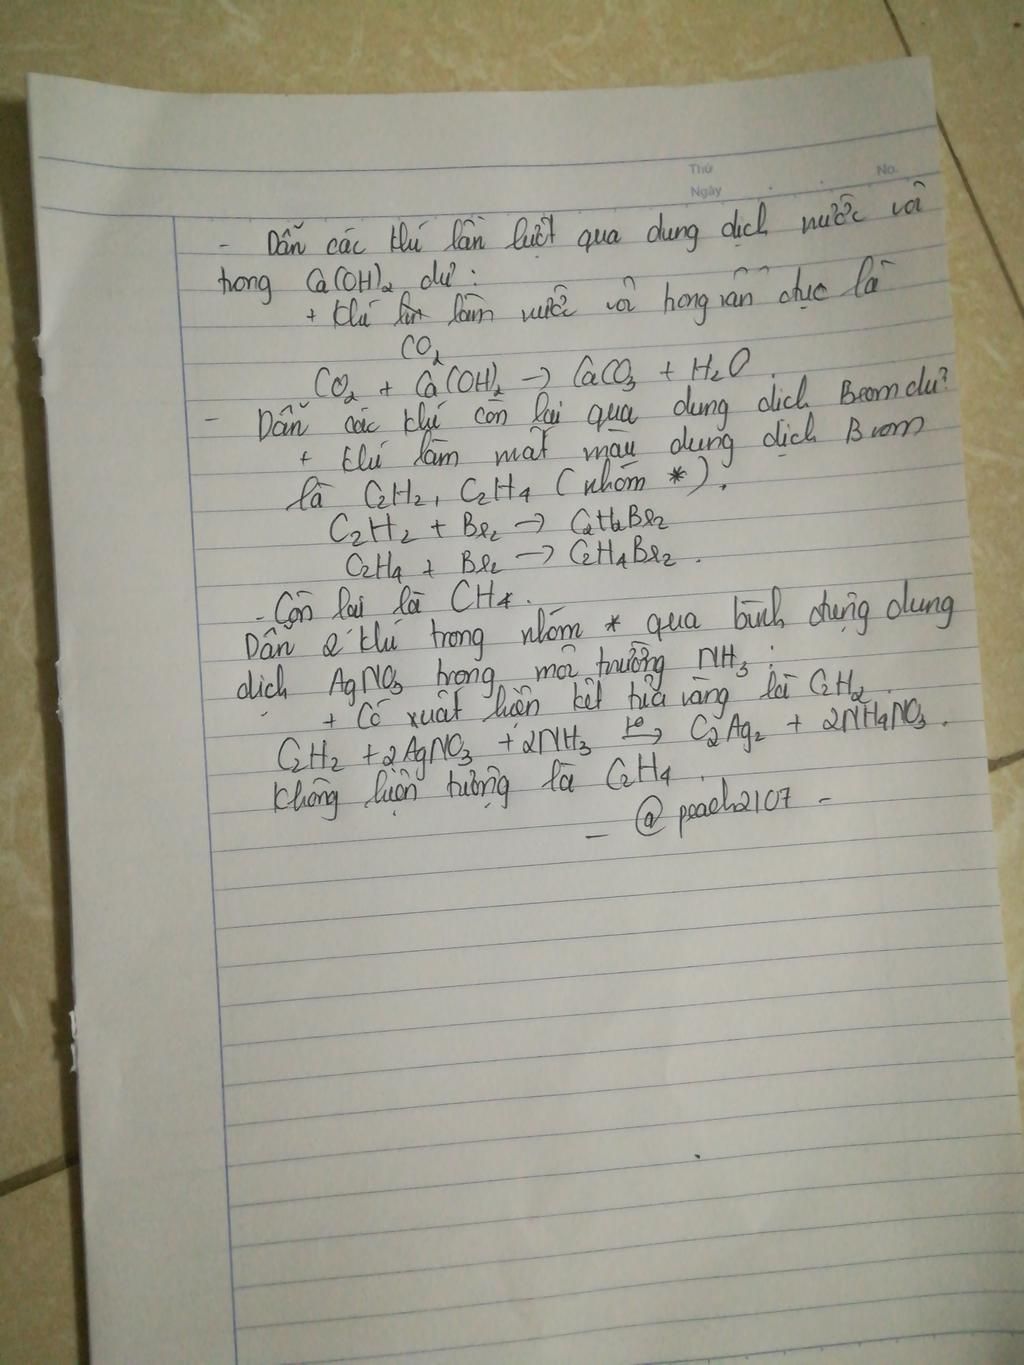 Thứ
No.
Ngày
- Dẫn các khí lần lượt qua dung dịch nước vôi
trong Ca(OH)₂ dư:
+ Khí làm nước vôi trong vẩn đục là
CO₂
CO₂ + Ca(OH)₂ → CaCO₃ + H₂O.
- Dẫn các khí còn lại qua dung dịch Brom dư:
+ Khí làm mất màu dung dịch Brom
là C₂H₂, C₂H₄ (nhóm *).
C₂H₂ + Br₂ → C₂H₂Br₂
C₂H₄ + Br₂ → C₂H₄Br₂.
- Còn lại là CH₄.
Dẫn 2 khí trong nhóm * qua bình đựng dung
dịch AgNO₃ trong môi trường NH₃:
+ Có xuất hiện kết tủa vàng là C₂H₂.
C₂H₂ + 2AgNO₃ + 2NH₃ t⁰→ C₂Ag₂ + 2NH₄NO₃.
Không hiện tượng là C₂H₄.
- @peach2107 -